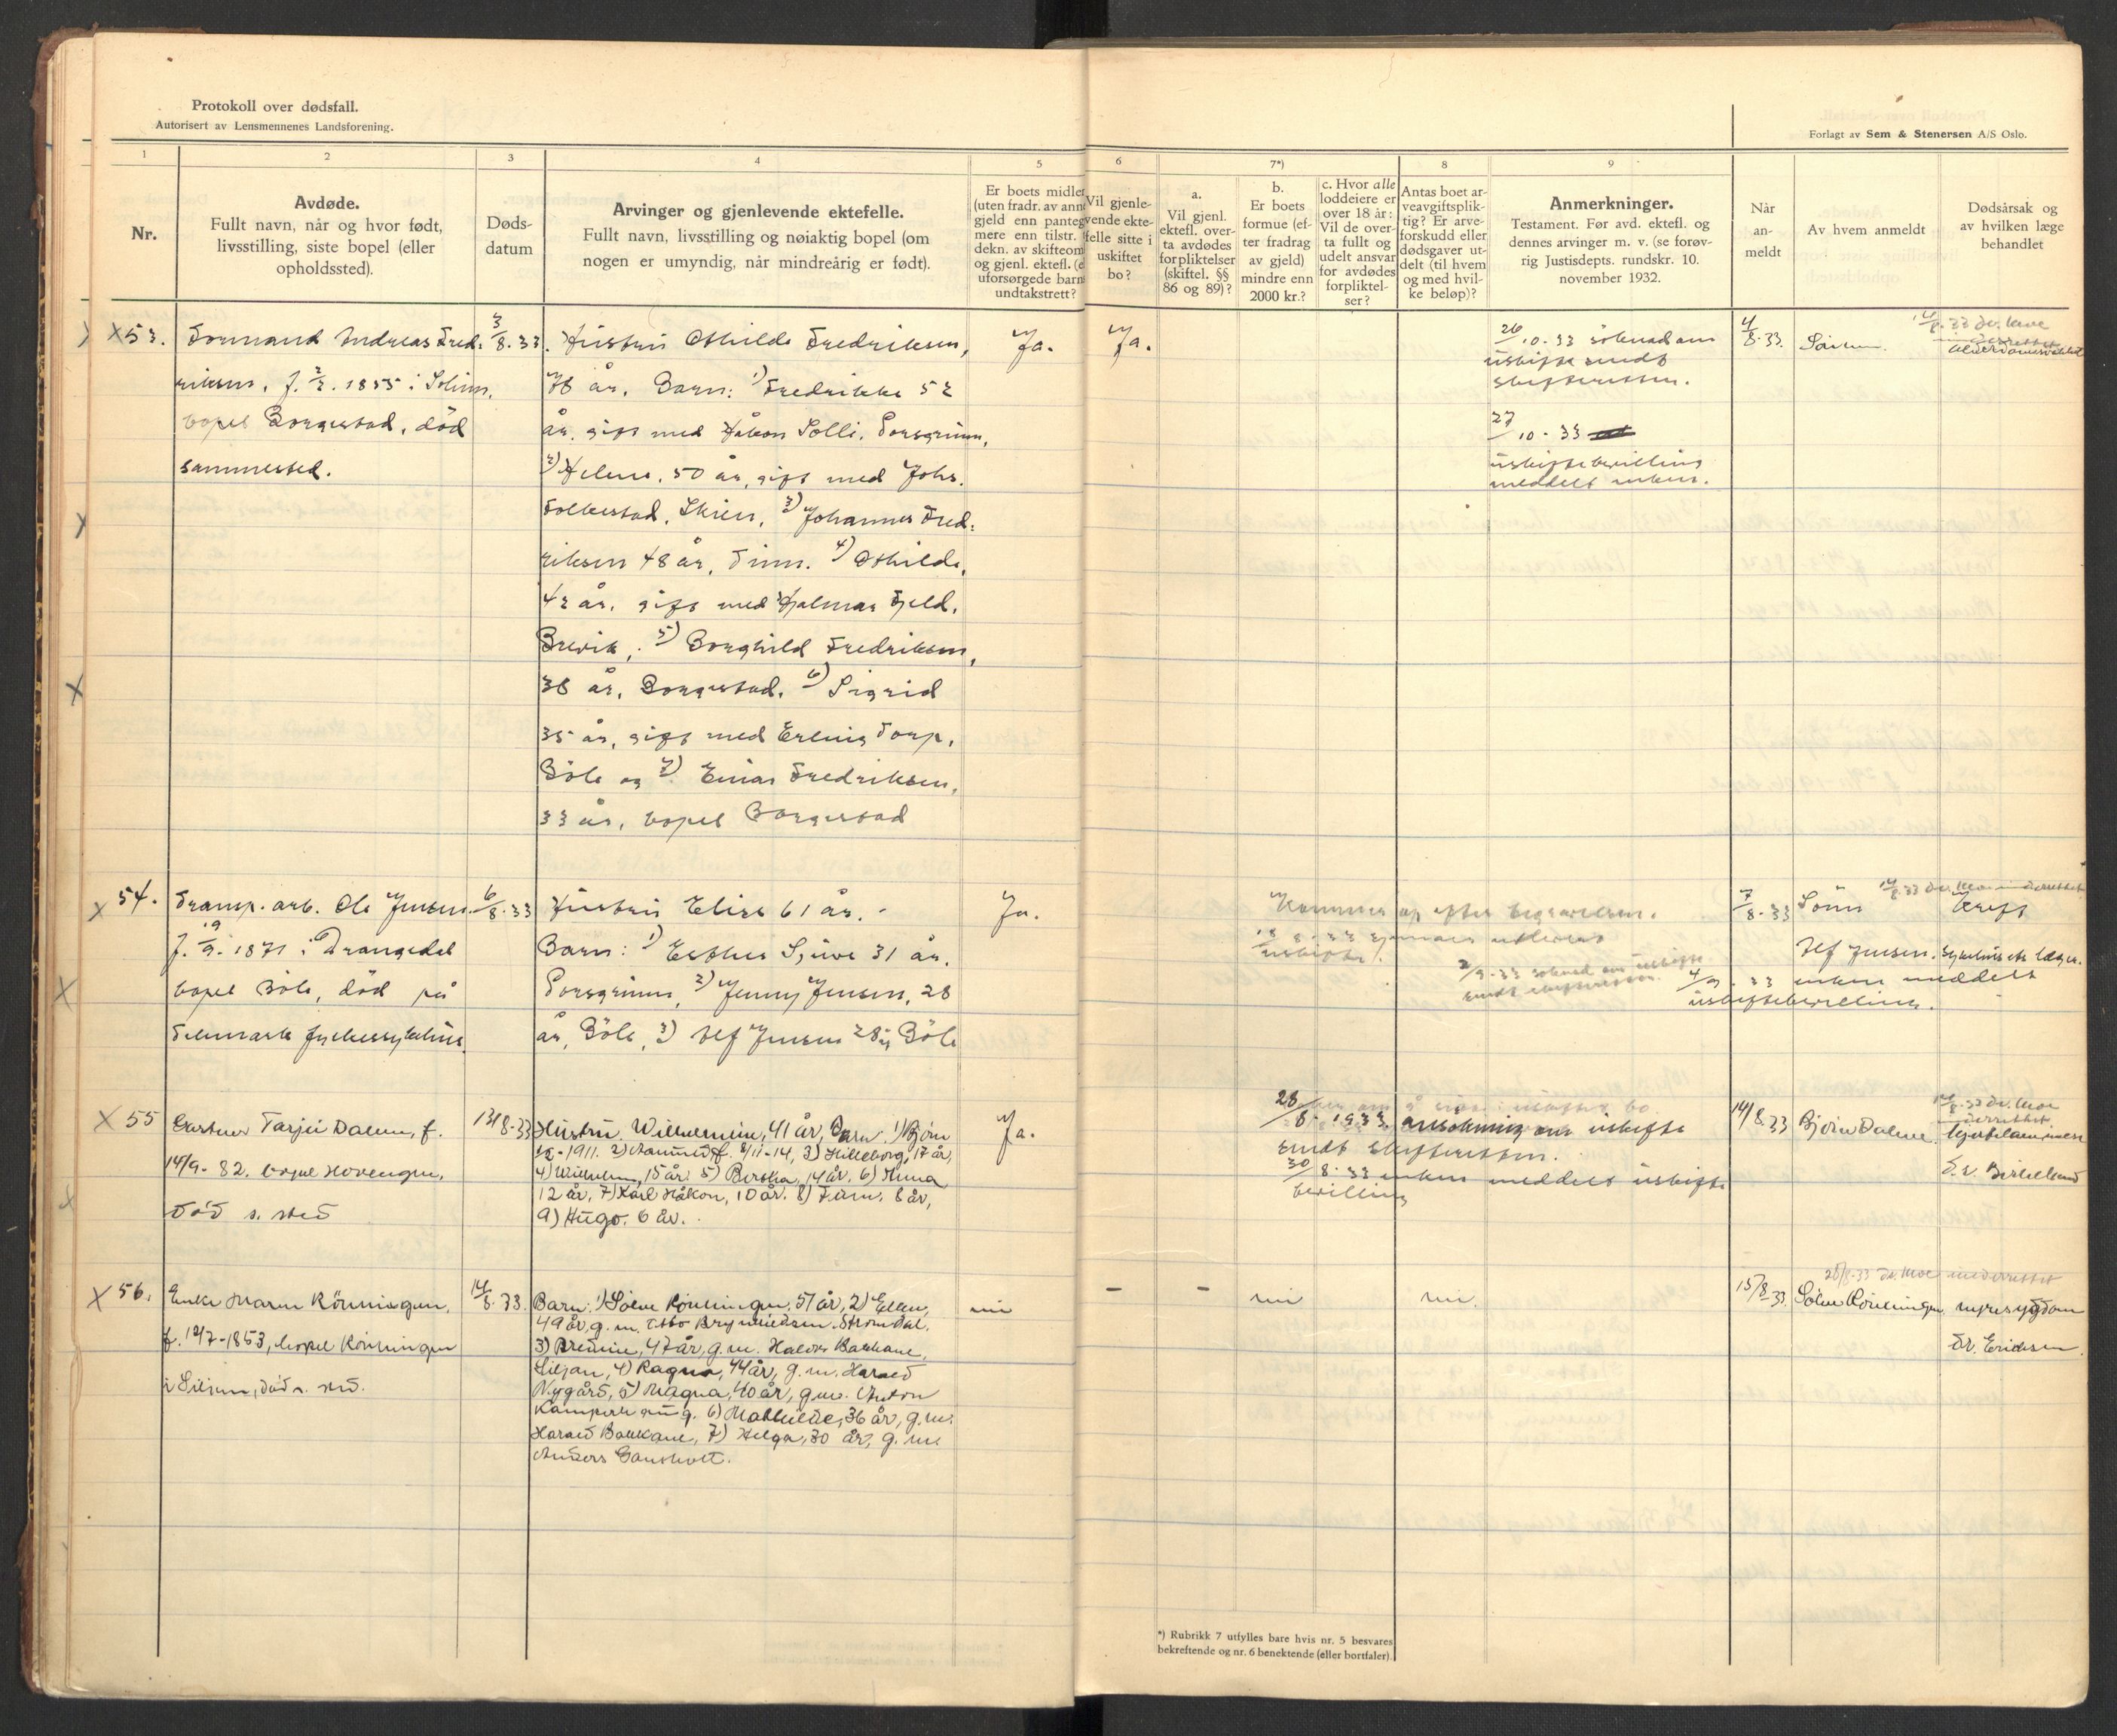 Protokoll over dødsfall.
Autorisert av Lensmennenes Landsforening.
Forlagt av Sem & Stenersen A/S Oslo.
1
2
3
4
5
6
7*)
8
9
Nr.
Avdøde.
Fullt navn, når og hvor født,
livsstilling, siste bopel (eller
opholdssted).
Døds-
datum
Arvinger og gjenlevende ektefelle.
Fullt navn, livsstilling og nøiaktig bopel (om
nogen er umyndig, når mindreårig er født).
Er boets midler
(uten fradr. av
gjeld enn
mere enn tilstr.
dekn. av
og gjenl. ektefl.
uforsørgede barn
undtakstrett?
Vil gjenle-
vende ekte-
felle sitte i
uskiftet
bo?
a.
Vil gjenl.
ektefl. over-
ta avdødes
forpliktelser
(skiftel. §§
86 og 89)?
b.
Er boets
formue (ef-
ter fradrag
av gjeld)
mindre enn
2000 kr.?
c. Hvor alle
loddeiere er
over 18 år:
Vil de over-
ta fullt og
udelt ansvar
for avdødes
forpliktel-
ser?
Antas boet ar-
veavgiftsplik-
tig? Er arve-
forskudd eller
dødsgaver ut-
delt (til hvem
og med hvil-
ke beløp)?
Anmerkninger.
Testament. Før avd. ektefl. og
dennes arvinger m. v. (se forøv-
rig Justisdepts. rundskr. 10.
november 1932.
Når
an-
meldt
Av hvem anmeldt
Dødsårsak og
av hvilken læge
behandlet
X 53.
Formand Andreas Fred-
riksen, f. 1855 i Solum,
bopel Borgestad, död
sammested.
3/8-33.
Hustru Othilde Fredriksen,
78 år. Barn: 1) Fredrikke 52
år, gift med Håkon Solli, Porsgrunn,
2) Helene, 50 år, gift med Johs.
Folkestad, Skien, 3) Johannes Fred-
riksen 48 år, Tinn. 4) Othilde,
42 år, gift med Hjalmar Fjeld,
Brevik, 5) Borghild Fredriksen,
38 år, Borgestad, 6) Sigrid
35 år, gift med Erling Torp,
Böle og 7) Einar Fredriksen,
33 år, bopel Borgestad
Ja.
Ja.
26/10-33 söknad om
uskifte sendt
skifteretten.
27/10-33
uskiftebevilling
meddelt enken.
4/8-33.
dr. Moe
underrettet
alderdomssvakhet
X 54.
Transp. arb. Ole Jensen
f. 19/9-1871 i Drangedal
bopel Böle, död på
Telemark fylkessykehus
6/8-33
Hustru Elise 61 år. -
Barn: 1) Esther 31 år,
Porsgrunn, 2) Jenny Jensen, 28
år, Böle, 3) Alf Jensen Böle
Ja.
Kommer op efter begravelsen.
uskifte.
2/9-33 söknad om uskifte
sendt skifteretten.
4/9-33 enken meddelt
uskiftebevilling.
7/8-33
Sönn
Alf Jensen.
dr. Moe underrettet
Kreft
Sykehusets læger.
X 55
Gartner Tarjei Dalene, f.
14/9-82. bopel Hovenga,
död s. sted
13/8-33
Hustru Wilhelmine, 41 år, Barn: 1) Björn
1911. 2) f. 8/11-14, 3) Hilleborg, 17 år,
4) Wilhelm, 15 år 5) Bertha, 14 år, 6) Anna
12 år, 7) Karl Håkon, 10 år. 8) Finn, 8 år,
9) Hugo, 6 år.
Ja.
28/8-1933. ansökning om uskifte
sendt skifteretten.
30/8-33 enken meddelt uskifte
bevilling
14/8 33
Björn Dalene.
dr. Moe
underrettet.
d. v. Birkeland
X 56.
Enke Maren Rönningen,
f. 12/7-1853, bopel Rönningen
i Siljan, död s. sted.
14/8-33.
Barn: 1) Sölve Rönningen, 51 år, 2) Ellen,
49 år, g. m. Brynildsen Strømdal,
3) Bredine, 47 år, g. m. Halvor Bakkane,
Siljan, 4) Ragna, 44 år, g. m. Harald
Nygård, 5) Magna, 40 år, g. m. Anton
6) Mathilde, 36 år, g. m.
Harald Bakkane, 7) Helga, 30 år, g. m.
Anders Gausholt.
nei
-
-
nei
nei.
15/8-33.
Sölve Rönningen
28/8-33 dr. Moe underrettet
nyresygdom
Dr. Eriksen.
*) Rubrikk 7 utfylles bare hvis nr. 5 besvares
bekreftende og nr. 6 benektende (eller bortfaler).